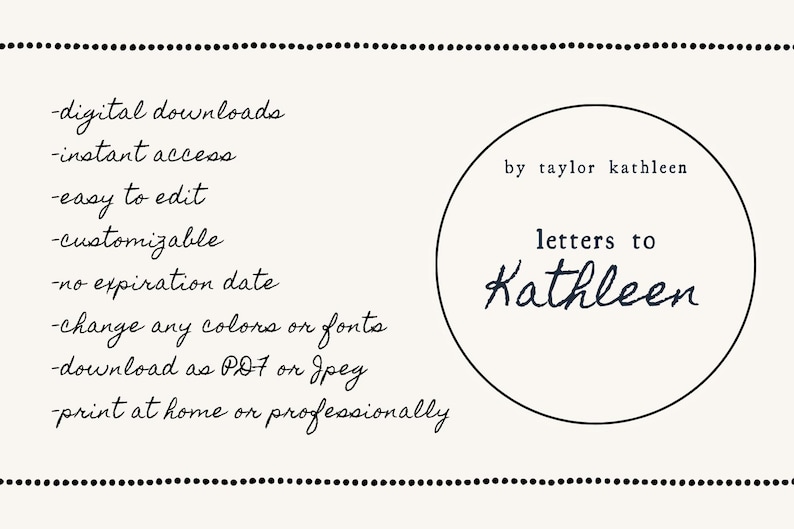 -digital downloads
-instant access
-easy to edit
-customizable
-no expiration date
-change any colors or fonts
-download as PDF or Jpeg
-print at home or professionally
by taylor kathleen
letters to
Kathleen